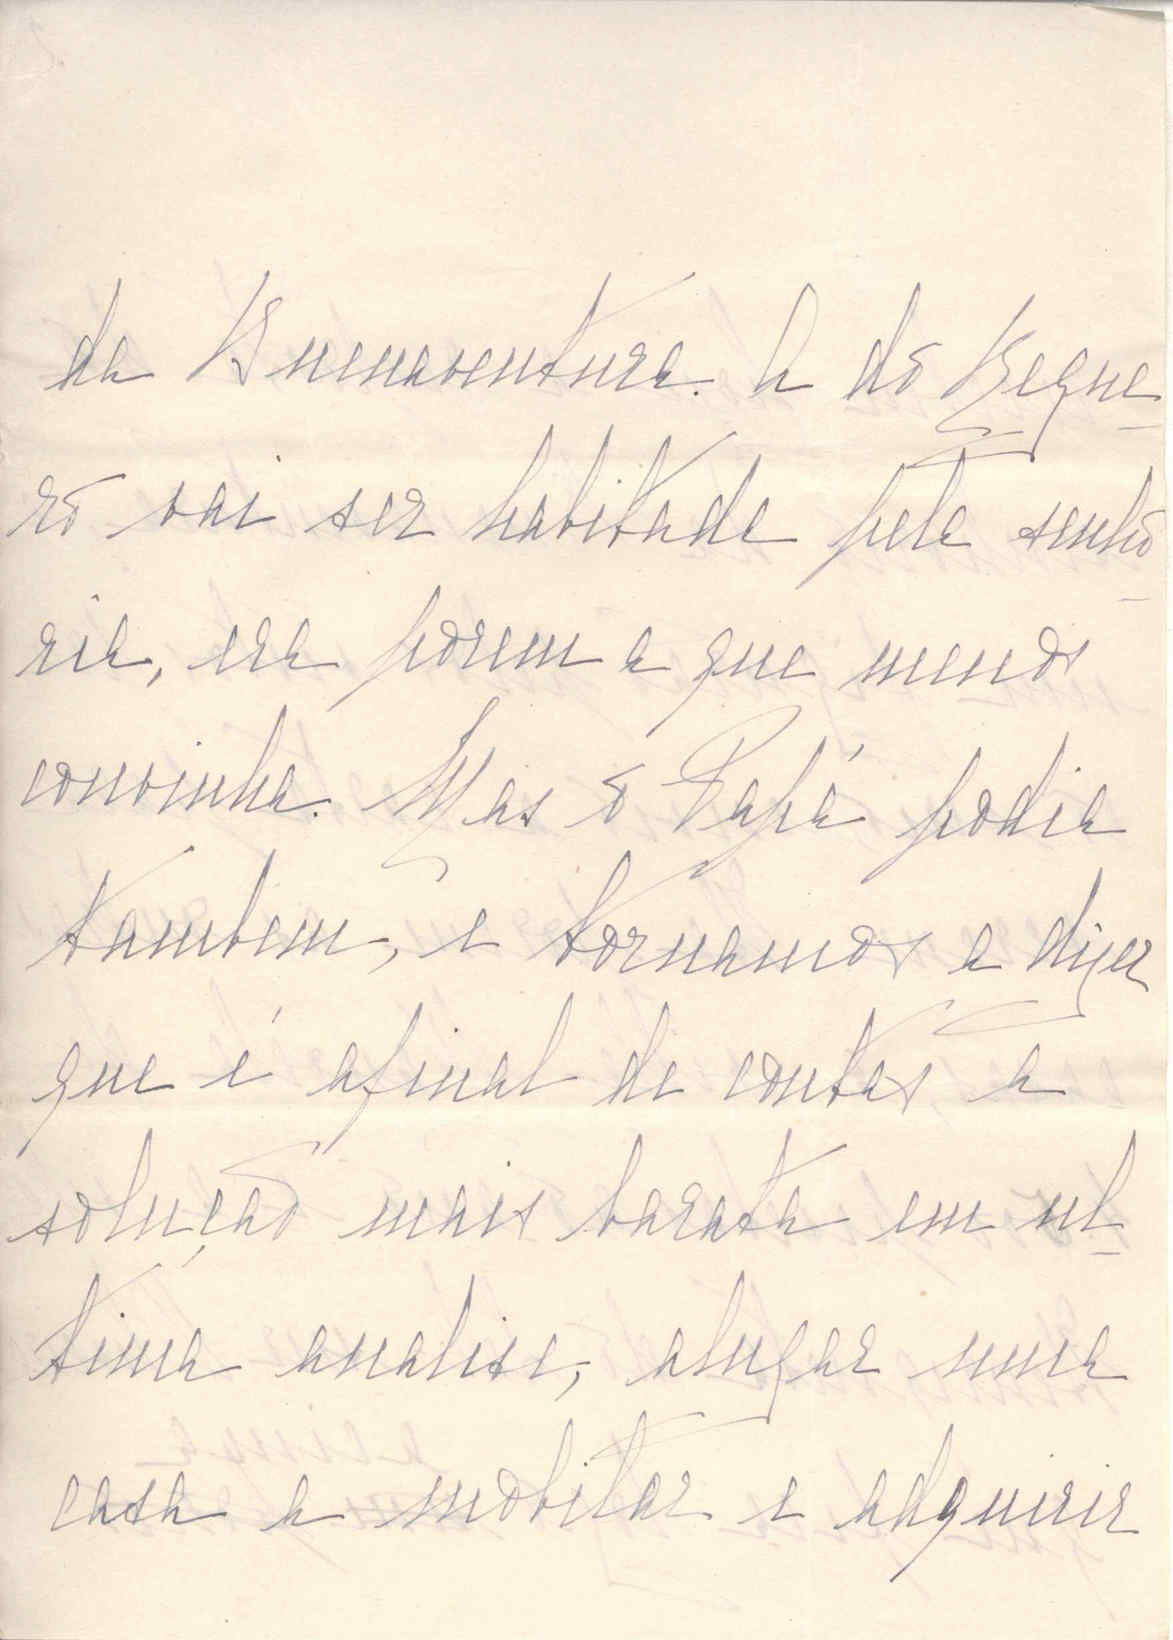 da Buenaventura. A do Reque-
ro vai ser habitada pela senho-
ria, era porem a que menos
convinha. Mas o Papá podia
tambem, e tornamos a dizer
que é afinal de contas a
solução mais barata em ul-
tima analise, alugar uma
casa a mobilar e adquirir